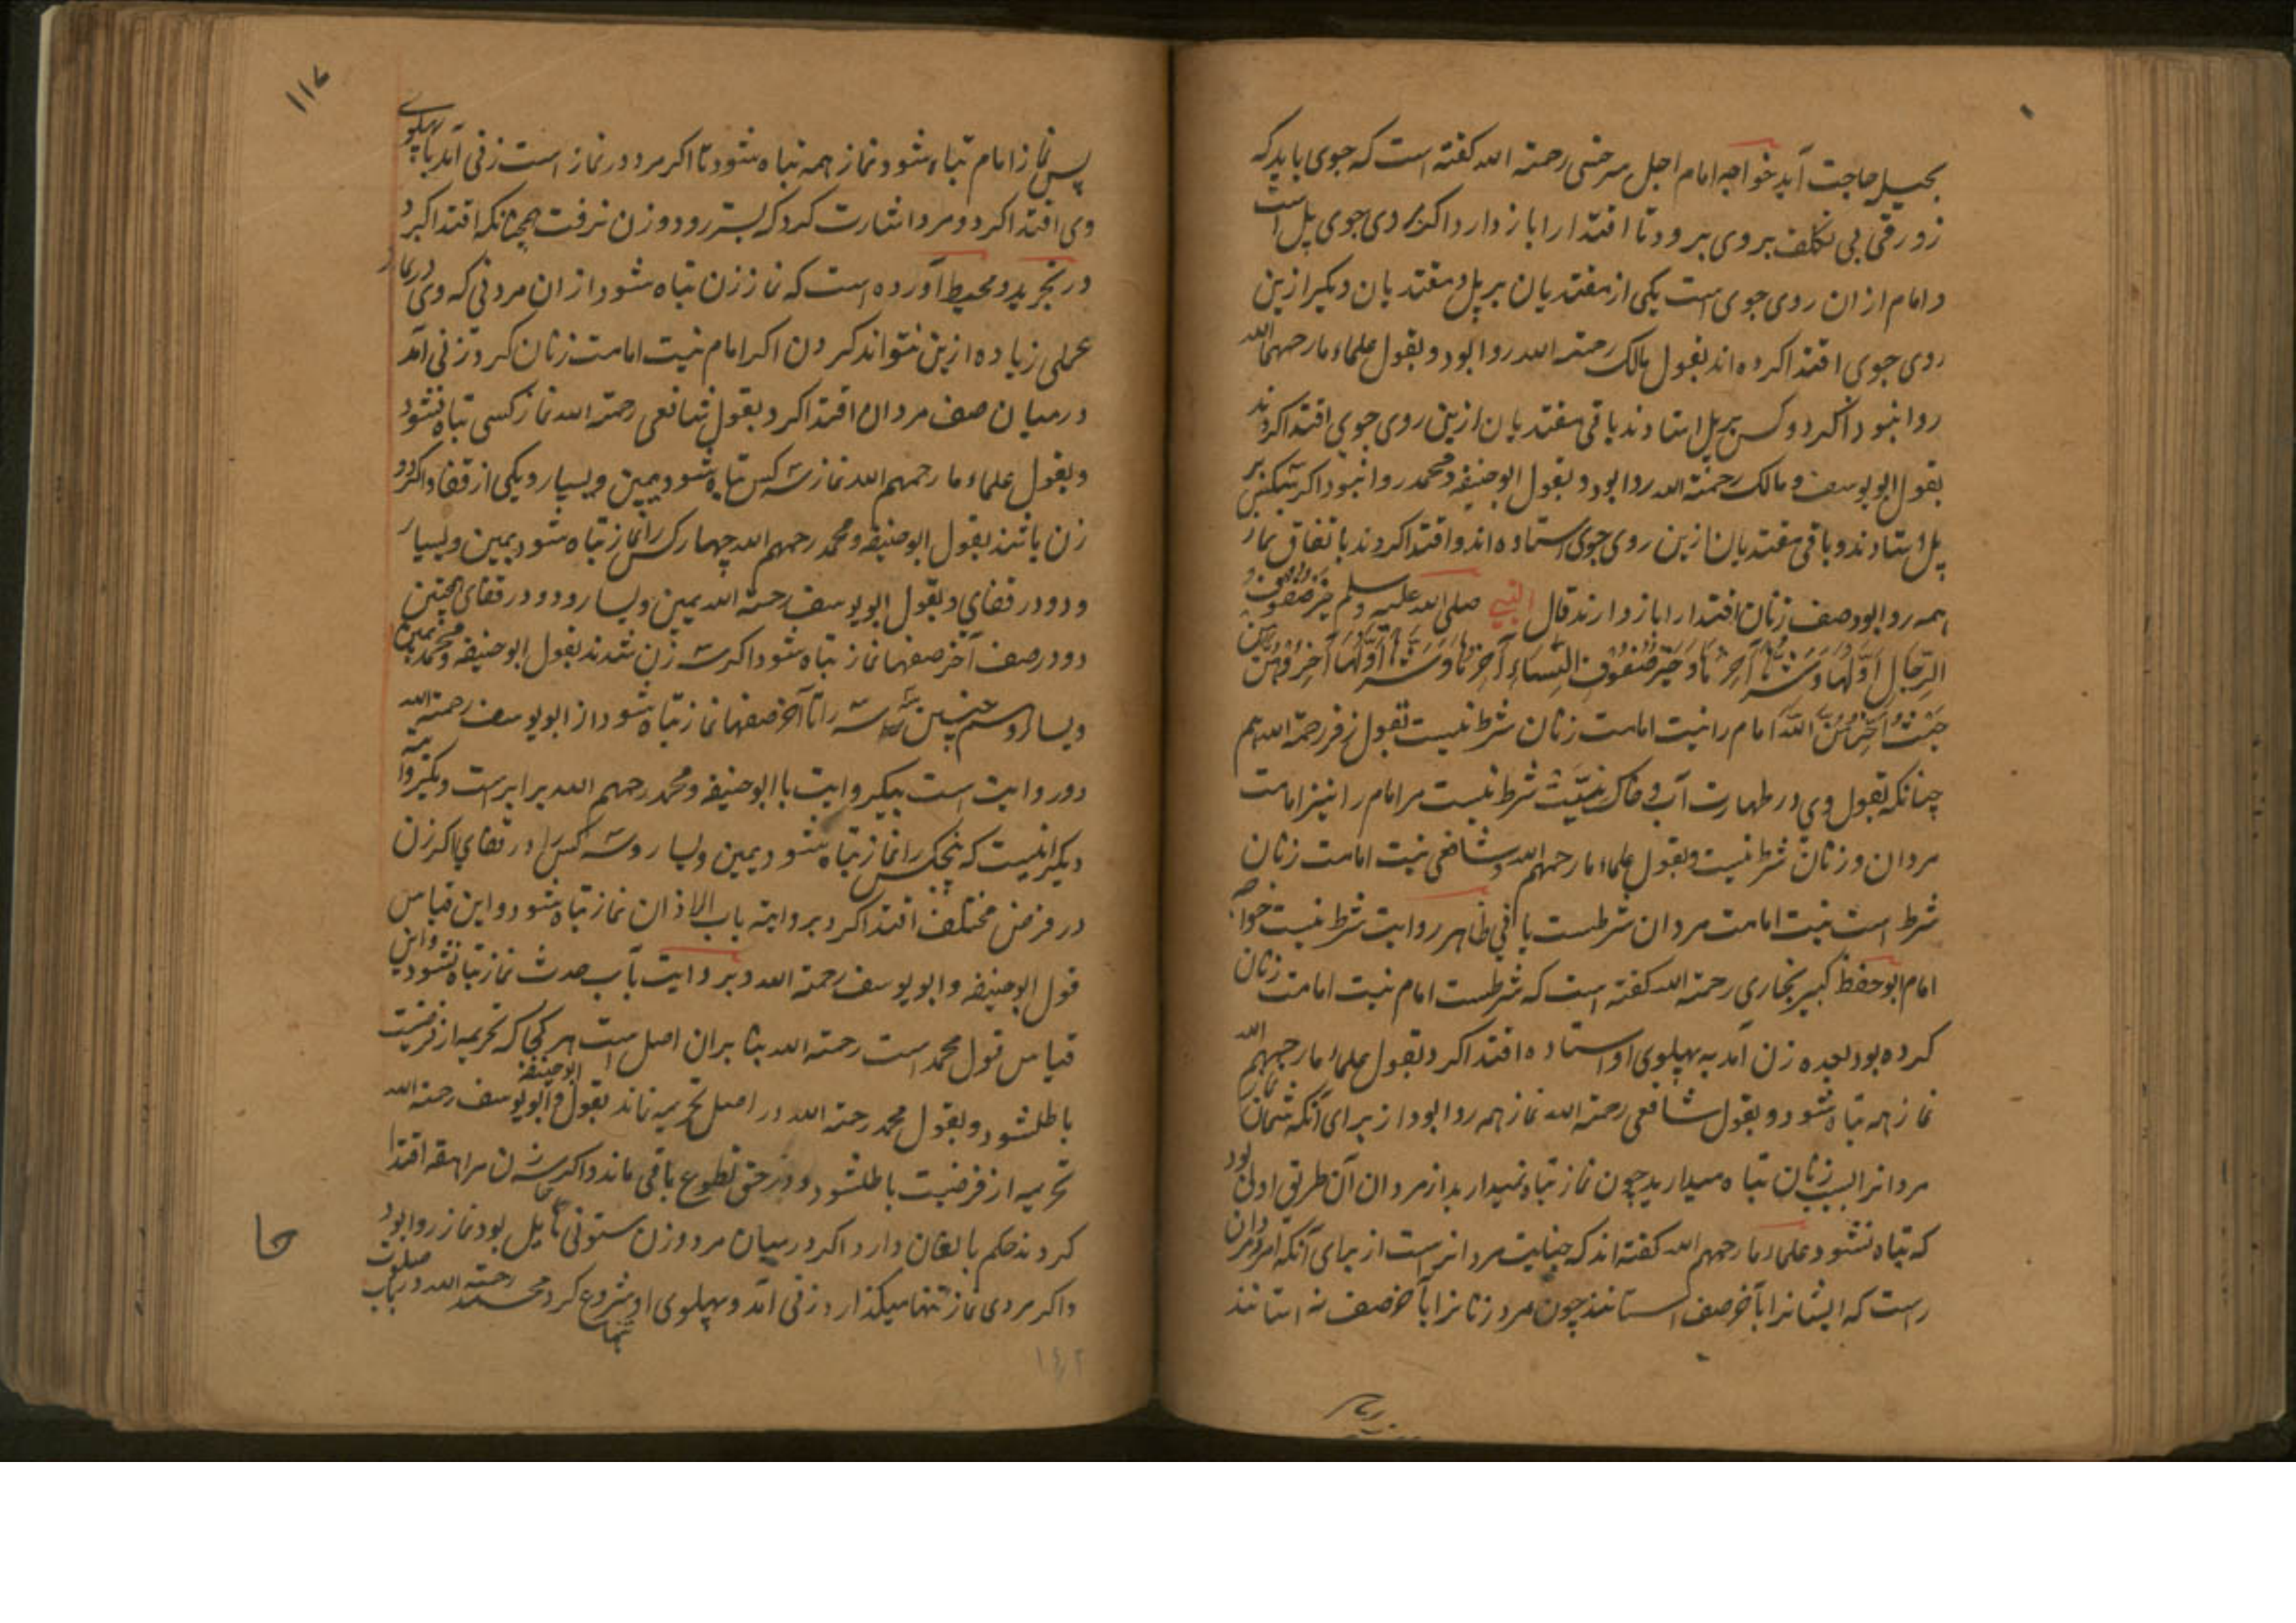 بحیل حاجت آید خواجه امام اجل سرخسی رحمة الله گفته است که جوی باید که
زورقی بی تکلف بروی برود تا اقتدا را باز دارد اگر بروی جوی پل است
و امام از ان روی جوی است یکی از مقتدیان بر پل و مقتدیان دیگر ازین
روی جوی اقتدا کرده اند بقول مالک رحمة الله روا بود و بقول علماء ما رحمهم الله
روا نبود اگر دو کس بر پل استادند باقی مقتدیان ازین روی جوی اقتدا کردند
بقول ابو یوسف و مالک رحمة الله روا بود و بقول ابو حنیفه و محمد روا نبود اگر سه کس بر
پل استادند و باقی مقتدیان ازین روی جوی استاده اند و اقتدا کردند باتفاق نماز
همه روا بود صف زنان اقتدا را باز دارند قال النبی صلی الله علیه وسلم خیر صفوف
الرجال اولها و شرها آخرها و خیر صفوف النساء آخرها و شرها اولها اخروهن من
حیث اخرهن الله امام را نیت امامت زنان شرط نیست بقول زفر رحمة الله هم
چنانکه بقول وی در طهارت آب و خاک نیت شرط نیست مر امام را نیز امامت
مردان و زنان شرط نیست و بقول علماء ما رحمهم الله و شافعی نیت امامت زنان
شرط است نیت امامت مردان شرطست یا نی ظاهر روایت شرط نیست خواجه
امام ابو حفظ کبیر بخاری رحمة الله گفته است که شرطست امام نیت امامت زنان
کرده بود بعده زن آمد به پهلوی او استاده اقتدا کرد بقول علماء ما رحمهم الله
نماز همه تباه شود و بقول شافعی رحمة الله نماز همه روا بود از برای آنکه شما نماز
مردانرا بسبب زنان تباه میدارید چون نماز تباه نمیدارید از مردان آن طریق اولی بود
که تباه نشود علماء ما رحمهم الله گفته اند که جنایت مردانراست از برای آنکه امر مردان
راست که ایشانرا بآخر صف استانند چون مرد زنانرا بآخر صف نه استانند
۱۱۷
پس نماز امام تباه شود نماز همه تباه شود تا اگر مرد در نماز است زنی آمد با پهلوی
وی اقتدا کرد و مرد اشارت کرد که پستر رود و زن نرفت همچنانکه اقتدا کرد
در تجرید و محیط آورده است که نماز زن تباه شود از ان مرد نی که وی در نماز
عملی زیاده ازین نتواند کردن اگر امام نیت امامت زنان کرد زنی آمد
در میان صف مردان اقتدا کرد بقول شافعی رحمة الله نماز کسی تباه نشود
و بقول علماء ما رحمهم الله نماز سه کس تباه شود یمین و یسار و یکی از قفا و اگر دو
زن باشند بقول ابو حنیفه و محمد رحمهم الله چهار کس را نماز تباه شود یمین و یسار
و دو در قفای و بقول ابو یوسف رحمة الله یمین و یسار و دو در قفای همچنین
دو در صف آخر صفها نماز تباه شود اگر سه زن شدند بقول ابو حنیفه و محمد یمین
و یسار و همچنین سه سه را تا آخر صفها نماز تباه شود از ابو یوسف رحمة الله
دو روایت است بیک روایت با ابو حنیفه و محمد رحمهم الله برابرست و یک روایت
دیگر اینست که پنج کس را نماز تباه شود یمین و یسار و سه کس در قفای اگر زن
در فرض مختلف اقتدا کرد بروایة باب الاذان نماز تباه شود و این قیاس
قول ابو حنیفه و ابو یوسف رحمة الله و بروایت باب حدث نماز تباه نشود و این
قیاس قول محمد است رحمة الله بنا بر ان اصل است هر کجا که تحریمه از فرضیت
باطلشود و بقول محمد رحمة الله در اصل تحریمه نماند بقول ابو حنیفه و ابو یوسف رحمة الله
تحریمه از فرضیت باطلشود و در حق تطوع باقی ماند و اگر زن مراهقه اقتدا
کردند حکم بالغان دارد اگر در میان مرد و زن ستونی حایل بود نماز روا بود
و اگر مردی نماز تنها میگذارد زنی آمد و پهلوی او شروع کرد محمد رحمة الله در باب صلوت
تنها
۱۴۲